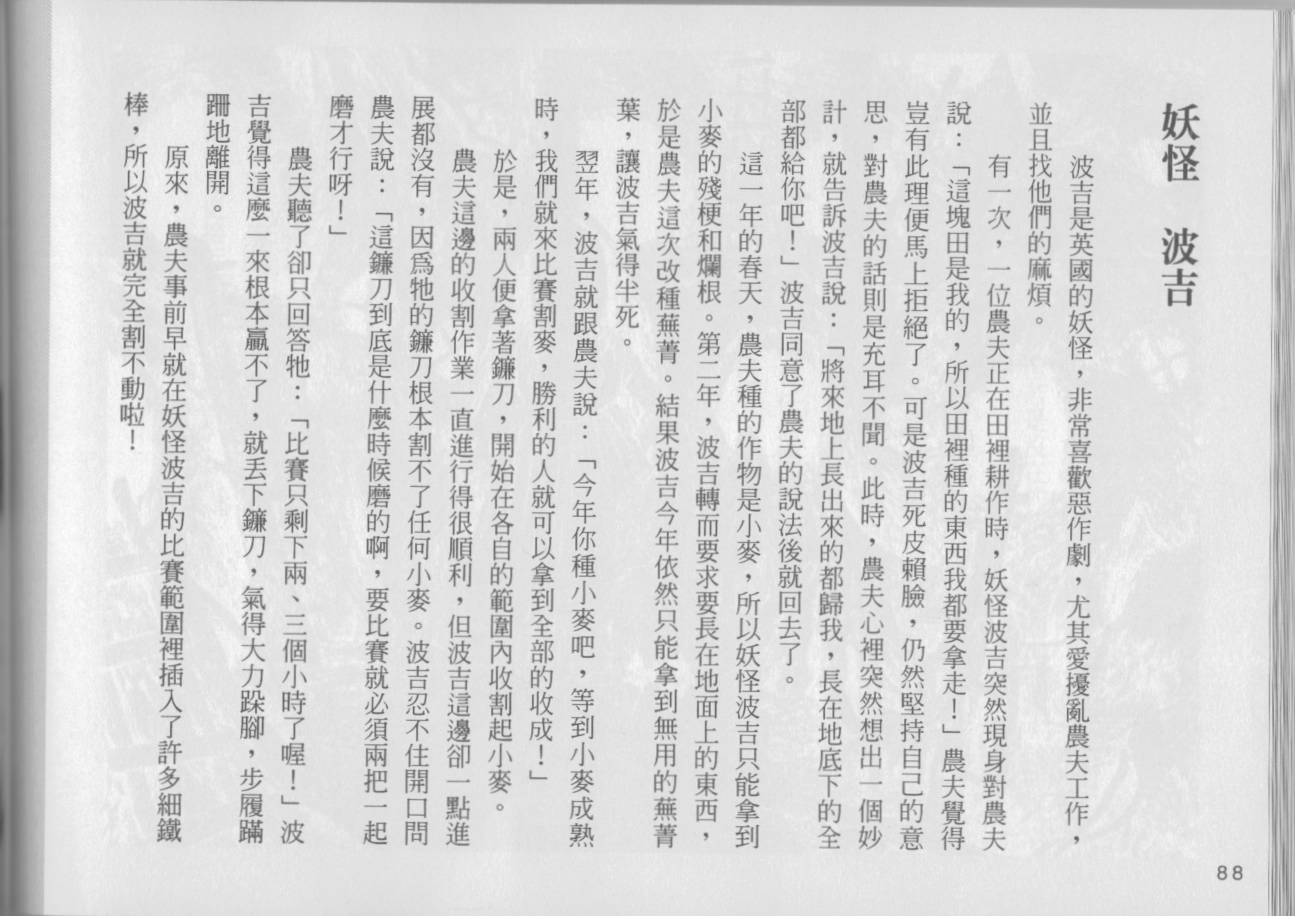 妖怪 波吉
波吉是英國的妖怪，非常喜歡惡作劇，尤其愛擾亂農夫工作，
並且找他們的麻煩。
有一次，一位農夫正在田裡耕作時，妖怪波吉突然現身對農夫
說：「這塊田是我的，所以田裡種的東西我都要拿走！」農夫覺得
豈有此理便馬上拒絕了。可是波吉死皮賴臉，仍然堅持自己的意
思，對農夫的話則是充耳不聞。此時，農夫心裡突然想出一個妙
計，就告訴波吉說：「將來地上長出來的都歸我，長在地底下的全
部都給你吧！」波吉同意了農夫的說法後就回去了。
這一年的春天，農夫種的作物是小麥，所以妖怪波吉只能拿到
小麥的殘梗和爛根。第二年，波吉轉而要求要長在地面上的東西，
於是農夫這次改種蕪菁。結果波吉今年依然只能拿到無用的蕪菁
葉，讓波吉氣得半死。
翌年，波吉就跟農夫說：「今年你種小麥吧，等到小麥成熟
時，我們就來比賽割麥，勝利的人就可以拿到全部的收成！」
於是，兩人便拿著鐮刀，開始在各自的範圍內收割起小麥。
農夫這邊的收割作業一直進行得很順利，但波吉這邊卻一點進
展都沒有，因爲牠的鐮刀根本割不了任何小麥。波吉忍不住開口問
農夫說：「這鐮刀到底是什麼時候磨的啊，要比賽就必須兩把一起
磨才行呀！」
農夫聽了卻只回答牠：「比賽只剩下兩、三個小時了喔！」波
吉覺得這麼一來根本贏不了，就丟下鐮刀，氣得大力跺腳，步履蹣
跚地離開。
原來，農夫事前早就在妖怪波吉的比賽範圍裡插入了許多細鐵
棒，所以波吉就完全割不動啦！
88